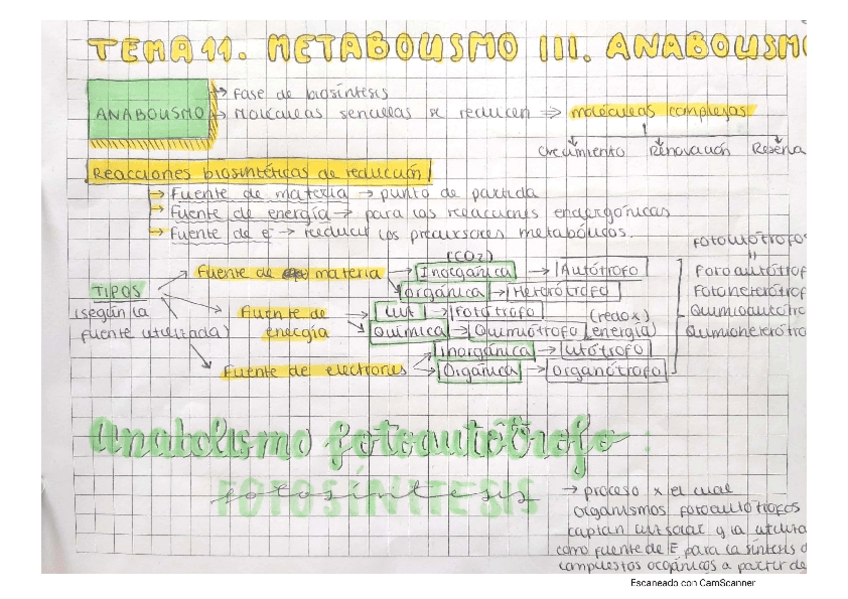 TEMA 11. METABOLISMO III. ANABOLISMO
ANABOLISMO → Fase de biosíntesis
→ Moléculas sencillas se reducen ⇒ moléculas complejas
Crecimiento Renovación Reserva
Reacciones biosintéticas de reducción
→ Fuente de materia → punto de partida
→ Fuente de energía → para las reacciones endergónicas
→ Fuente de e⁻ → reducir los precursores metabólicos.
TIPOS
(según la
fuente utilizada)
Fuente de materia
(CO₂)
Inorgánica → Autótrofo
Orgánica → Heterótrofo
Fuente de
energía
Luz → Fotótrofo
Química → Quimiótrofo (redox)
energía)
Fuente de electrones
Inorgánica → Litótrofo
Orgánica → Organótrofo
fotolitótrofos
=
Fotoautótrof
Fotoheterótrof
Quimioautótro
Quimioheterótro
Anabolismo fotoautótrofo:
FOTOSÍNTESIS
fotosíntesis
→ proceso x el cual
organismos fotoautótrofos
captan luz solar y la utiliza
como fuente de E para la síntesis d
compuestos orgánicos a partir de
Escaneado con CamScanner